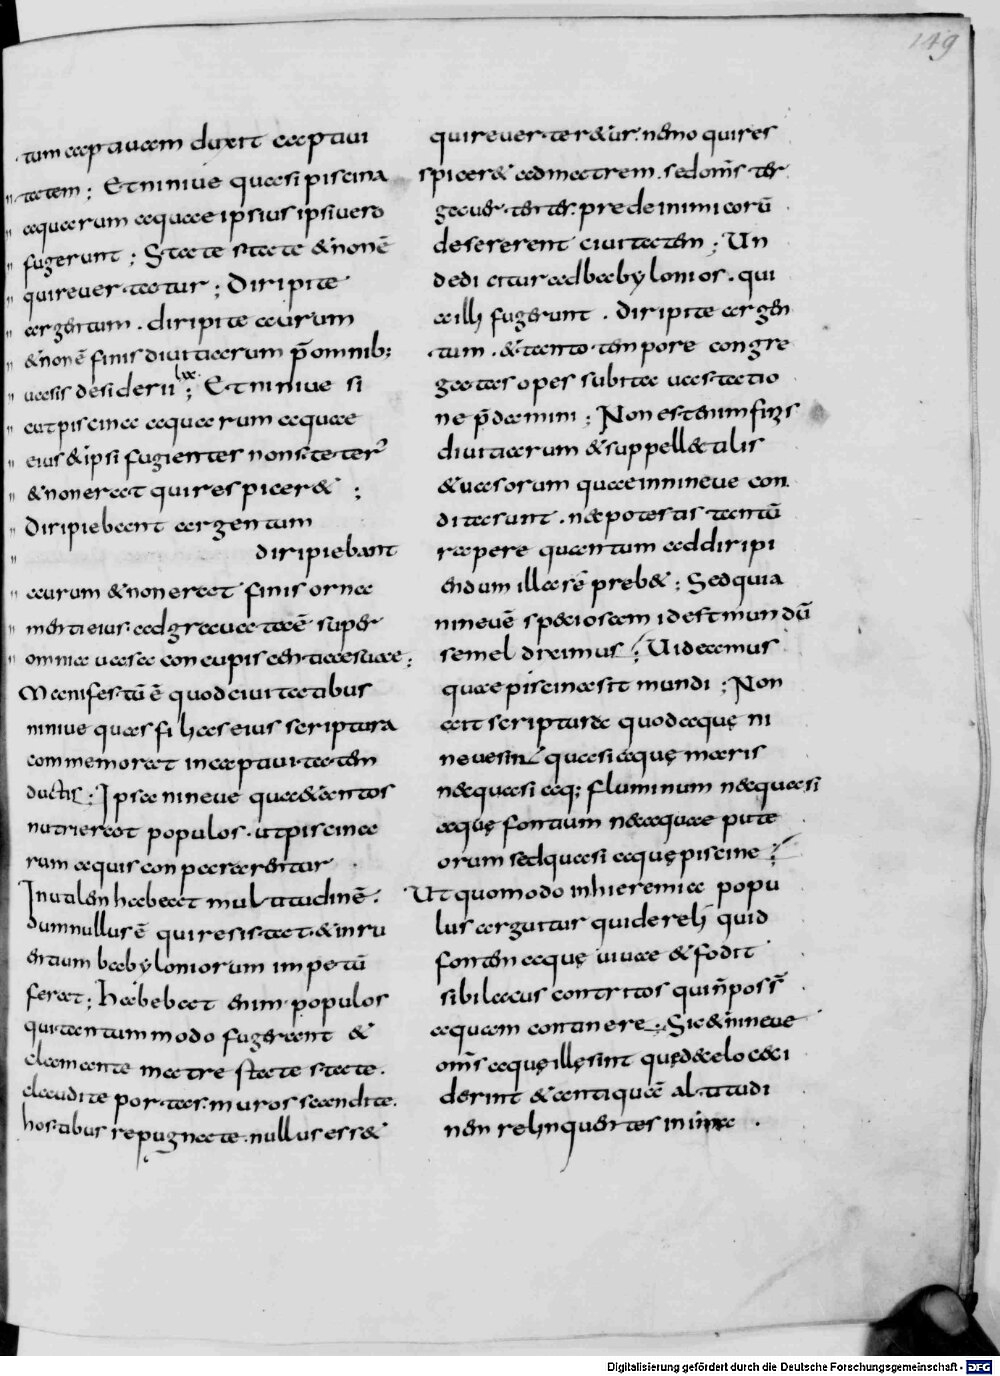 149
tum captiuam duxit captiui
tatem; Et niniue quasi piscina
aquarum aquae ipsius ipsi uero
fugerunt; State state & non ē
qui reuertatur; Diripite
argentum. diripite aurum
& non ē finis diuitiarum p̄ omnib;
uasis desiderii; lxx. Et niniue si
cut piscina aquarum aquae
eius & ipsi fugientes non steter̄
& non erat qui respicer&;
Diripiebant argentum
diripiebant
aurum & non erat finis orna
menti eius. adgrauata ē super
omnia uasa concupiscentiae suae;
Manifestū ē quod ciuitatibus
niniue quas filias eius scriptura
commemorat in captiuitatem
ductis; Ipsa nineue quae & antos
nutrierat populos. ut piscinae
rum aquis conpararentur
In utalen habeat multitudinē.
dum nullus ē qui resistat & inru
entium babyloniorum impetū
ferat; habebat enim populos
qui tantummodo fugerant &
clamante matre state state.
claudite portas. muros scandite.
hostibus repugnate. nullus ess&
qui reuerter&ur. nemo qui res
spicer& ad matrem. sed om̄s ter
ga uerterter. prede inimicorū
desererent ciuitatem; Un
de dicitur ad babylonios. qui
a illi fugerunt. Diripite argen
tum. & tanto tempore congre
gatas opes subita uastatio
ne p̄damini; Non est enim finis
diuitiarum & suppell&ilis
& uasorum quae in nineue con
dita sunt. nec potestis tantū
rapere quantum ad diripi
endum illa sē preb&; Sed quia
nineuē speciosam id est mundū
semel diximus; Uideamus
quae piscina sit mundi; Non
ait scripturae quod aquę ni
neue sint quasi aquę maris
nec quasi aq; fluminum nec quasi
aquę fontium nec aquae pute
orum sed quasi aquę piscine;
Ut quomodo in hieremia popu
lus arguitur qui dereliq̄ quid
fontem aquę uiuae & fodit
sibi lacus contritos qui ñ poss̄
aquam continere; Sic & nineue
om̄s aquę illę sint quę de caelo ceci
derint & antiquā altitudi
nem relinquentes in ima.
Digitalisierung gefördert durch die Deutsche Forschungsgemeinschaft - DFG